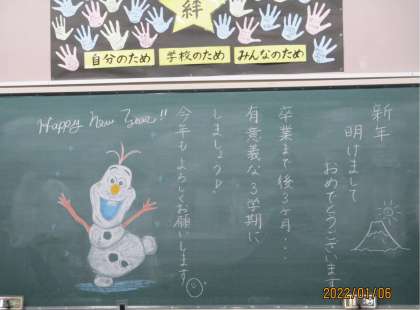 絆
自分のため 学校のため みんなのため
Happy New Year!!
新年
明けまして
おめでとうございます
卒業まで後3ヶ月...
有意義な3学期に
しましょう♪
今年もよろしくお願いします
2022/01/06